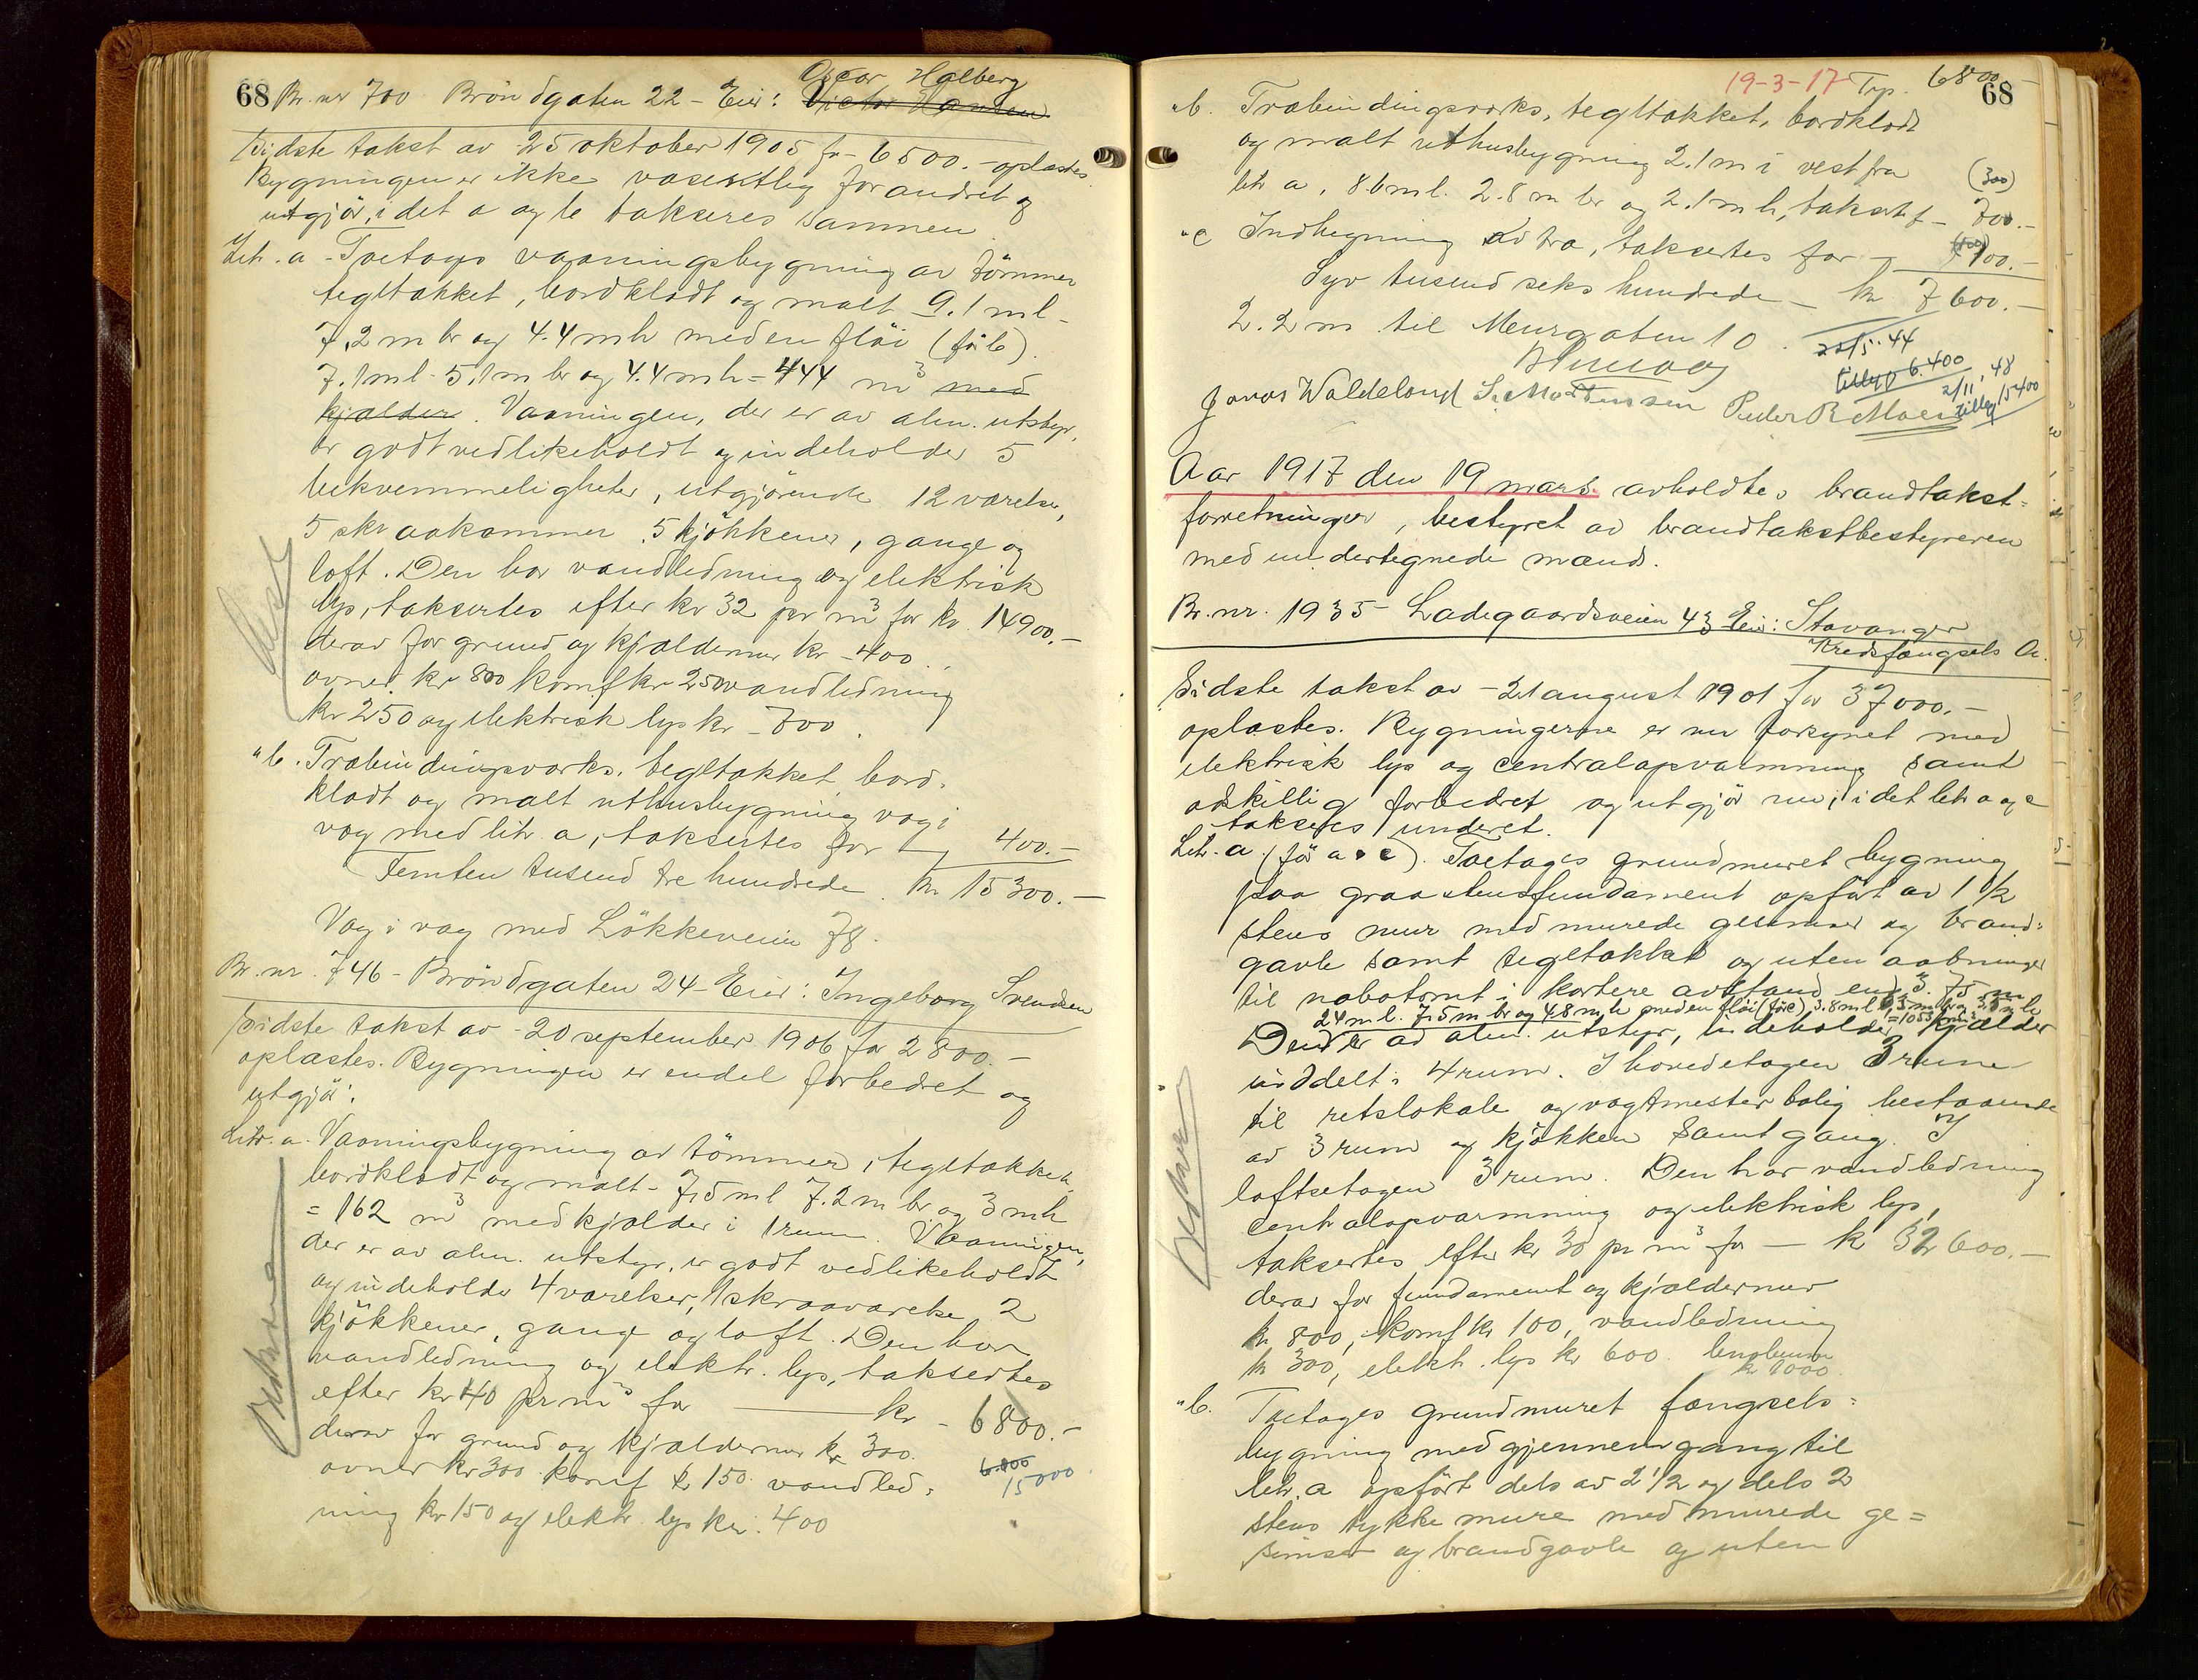 Oscar Halberg
68 Br. nr 700 Bröndgaten 22 - Eier: Victor Hansen
Sidste takst av 25 oktober 1905 for 6500.- oplæstes.
Bygningen er ikke væsentlig forandret og
utgjör, idet a og b takseres sammen
Litr. a - Toetages vaaningsbygning av tömmer
tegltækket, bordklædt og malt 9.1 m l -
7.2 m br og 4.4 m h med en flöi (för b).
7.1 m l - 5.1 m br og 4.4 m h = 444 m³ med
kjælder. Vaaningen, der er av alm. utstyr,
er godt vedlikeholdt og indeholder 5
bekvemmeligheter, utgjörende 12 værelser,
5 skraakammer, 5 kjökkener, gange og
loft. Den har vandledning og elektrisk
lys, taksertes efter kr 32 pr m³ for kr 14900.-
derav for grund og kjældermur kr - 400.
ovner kr 800 komf kr 250 vandledning
kr 250 og elektrisk lys kr - 700.
" b. Træbindingsværks, tegltækket, bord-
klædt og malt uthusbygning væg i
væg med litr. a, taksertes for 400.-
Femten tusend tre hundrede. kr 15300.-
Væg i væg med Lökkeveien 78.
Br. nr. 746 - Bröndgaten 24 - Eier: Ingeborg Svendsen
Sidste takst av - 20 september 1906 for 2800.-
oplæstes. Bygningen er endel forbedret og
utgjör:
Litr. a. Vaaningsbygning av tömmer, tegltækket,
bordklædt og malt - 7.5 m l 7.2 m br og 3 m h
= 162 m³ med kjælder i 1 rum. Vaaningen,
der er av alm. utstyr, er godt vedlikeholdt
og indeholder 4 værelser, 1 skraaværelse 2
kjökkener, gange og loft. Den har
vandledning og elektr. lys, taksertes
efter kr 40 pr m³ for kr - 6800.-
derav for grund og kjældermur kr 300.
ovner kr 300 komf kr 150 vandled-
6.800
15000
ning kr 150 og elektr lys kr. 400
19-3-17 Trp. 6800.-
68
" b. Træbindingsværks, tegltækket, bordklædt
og malt uthusbygning 2.1 m i vest fra
litr a. 8.6 m l. 2.8 m br og 2.1 m h, taksert f - 700.-
(300)
" c Indhegning av træ, taksertes for - 100.-
(400)
Syv tusend seks hundrede - kr 7600.-
2.2 m til Meurgaten 10.
22/5. 44
tillyp 6.400
2/11. 48
tilleg 15400
Jonas Waldeland S. Mortensen Peder R Moen
Aar 1917 den 19 mars avholdtes brandtakst-
forretninger, bestyret av brandtakstbestyreren
med undertegnede mænd.
Br. nr. 1935 - Ladegaardsveien 43 Eier: Stavanger
Kredsfængsels A.
Sidste takst av - 21 august 1901 for 37000.-
oplæstes. Bygningerne er nu forsynet med
elektrisk lys og centralopvarmning samt
adskillig forbedret og utgjör nu, idet litr a og c
takseres underet.
Litr. a (för a & c). Toetages grundmuret bygning
paa graastensfundament opfört av 1 1/2
stens mur med murede gesimser og brand-
gavle samt tegltækket og uten aabninger
til nabotomt i kortere avstand end 3.75 m
24 m l. 7.5 m br og 4.8 m h med en flöi (för c) 3.8 m l
= 1055 m³
Den er av alm. utstyr, indeholder kjælder
inddelt i 4 rum. I hovedetagen 3 rum
til retslokale og vagtmesterbolig bestaaende
av 3 rum og kjökken samt gang. I
loftsetagen 3 rum. Den har vandledning
centralopvarmning og elektrisk lys,
taksertes efter kr 30 pr m³ for - kr 32600.-
derav for fundament og kjældermur
kr 800, komf kr 100, vandledning
kr 300, elekt. lys kr 600.
kr 1000
" b. Toetages grundmuret fængsels-
bygning med gjennemgang til
litr. a opfört dels av 2 1/2 og dels 2
stens tykke mure med murede ge=
simser og brandgavle og uten